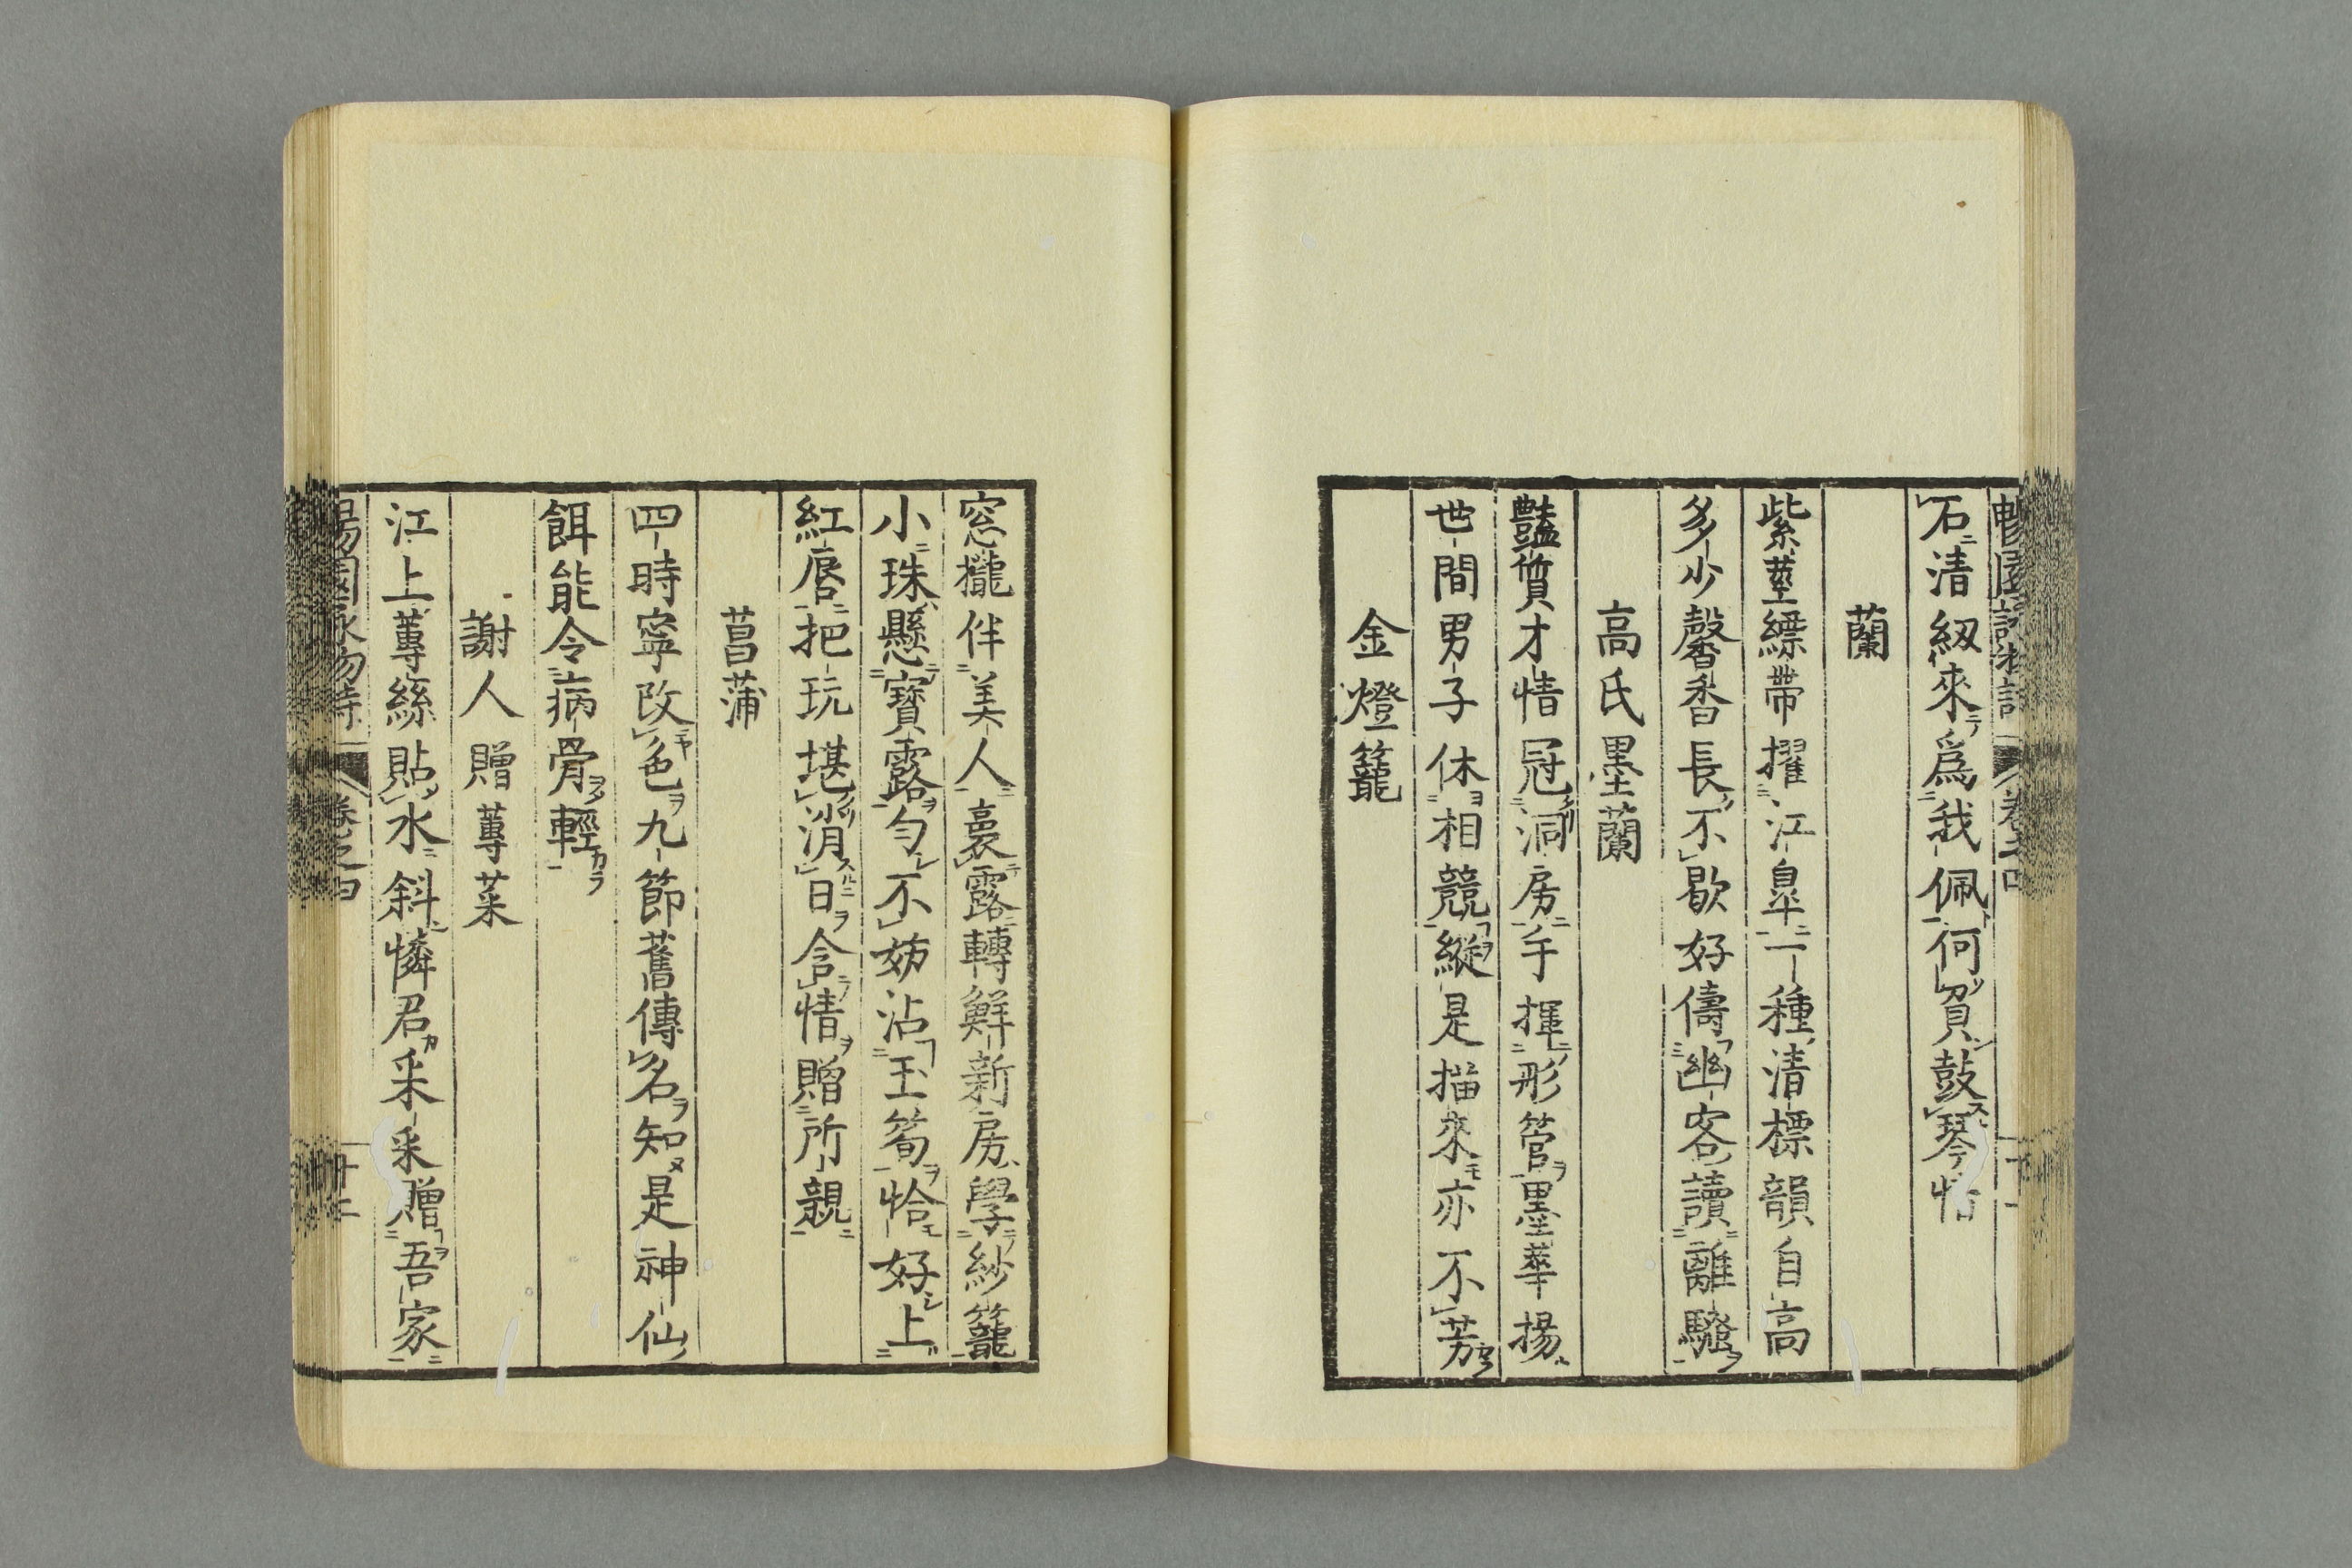 石清紉來爲我佩何負鼓琴情
蘭
紫莖縹帶擢江皐一種清標韻自高
多少馨香長不歇好儔幽客讀離騷
高氏墨蘭
豔質才情冠洞房手揮形管墨華揚
世間男子休相競縱是描來亦不芳
金燈籠
窓攏伴美人裛露轉鮮新房學紗籠
小珠懸寶露勻不妨沾玉筍恰好上
紅唇把玩堪消日含情贈所親
菖蒲
四時寧改色九節舊傳名知是神仙
餌能令病骨輕
謝人贈蓴菜
江上蓴絲貼水斜憐君采采贈吾家
卷之四
十二